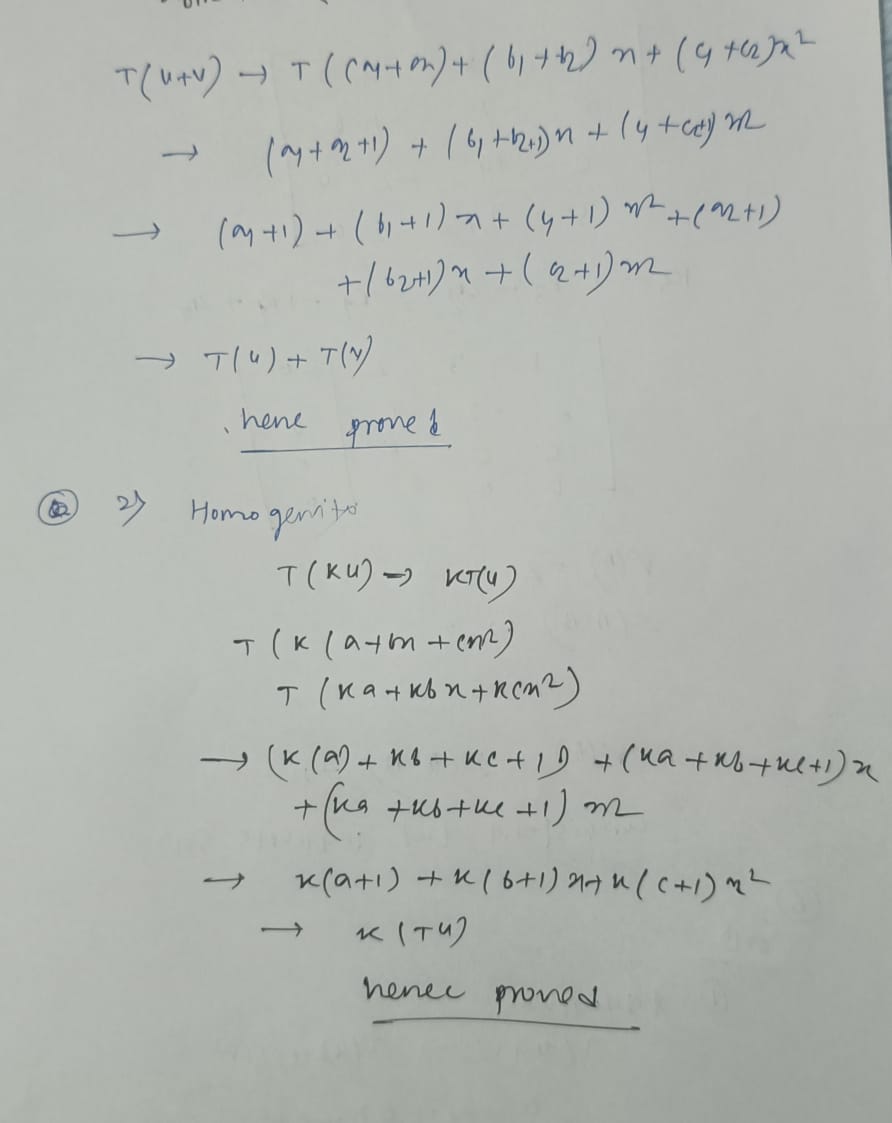 T(u+v) → T((a₁+a₂)+(b₁+b₂)x+(c₁+c₂)x²
→ (a₁+a₂+1) + (b₁+b₂+1)x + (c₁+c₂+1)x²
→ (a₁+1)+(b₁+1)x+(c₁+1)x²+(a₂+1)
+(b₂+1)x+(c₂+1)x²
→ T(u)+T(v)
hene proved
2) Homogenity
T(Ku) → KT(u)
T(K(a+bx+cx²)
T(Ka+Kbx+Kcx²)
→ (K(a)+Kb+Kc+1)) +(Ka+Kb+Kc+1)x
+(Ka+Kb+Kc+1)x²
→ K(a+1)+K(b+1)x+K(c+1)x²
→ K(Tu)
hence proved